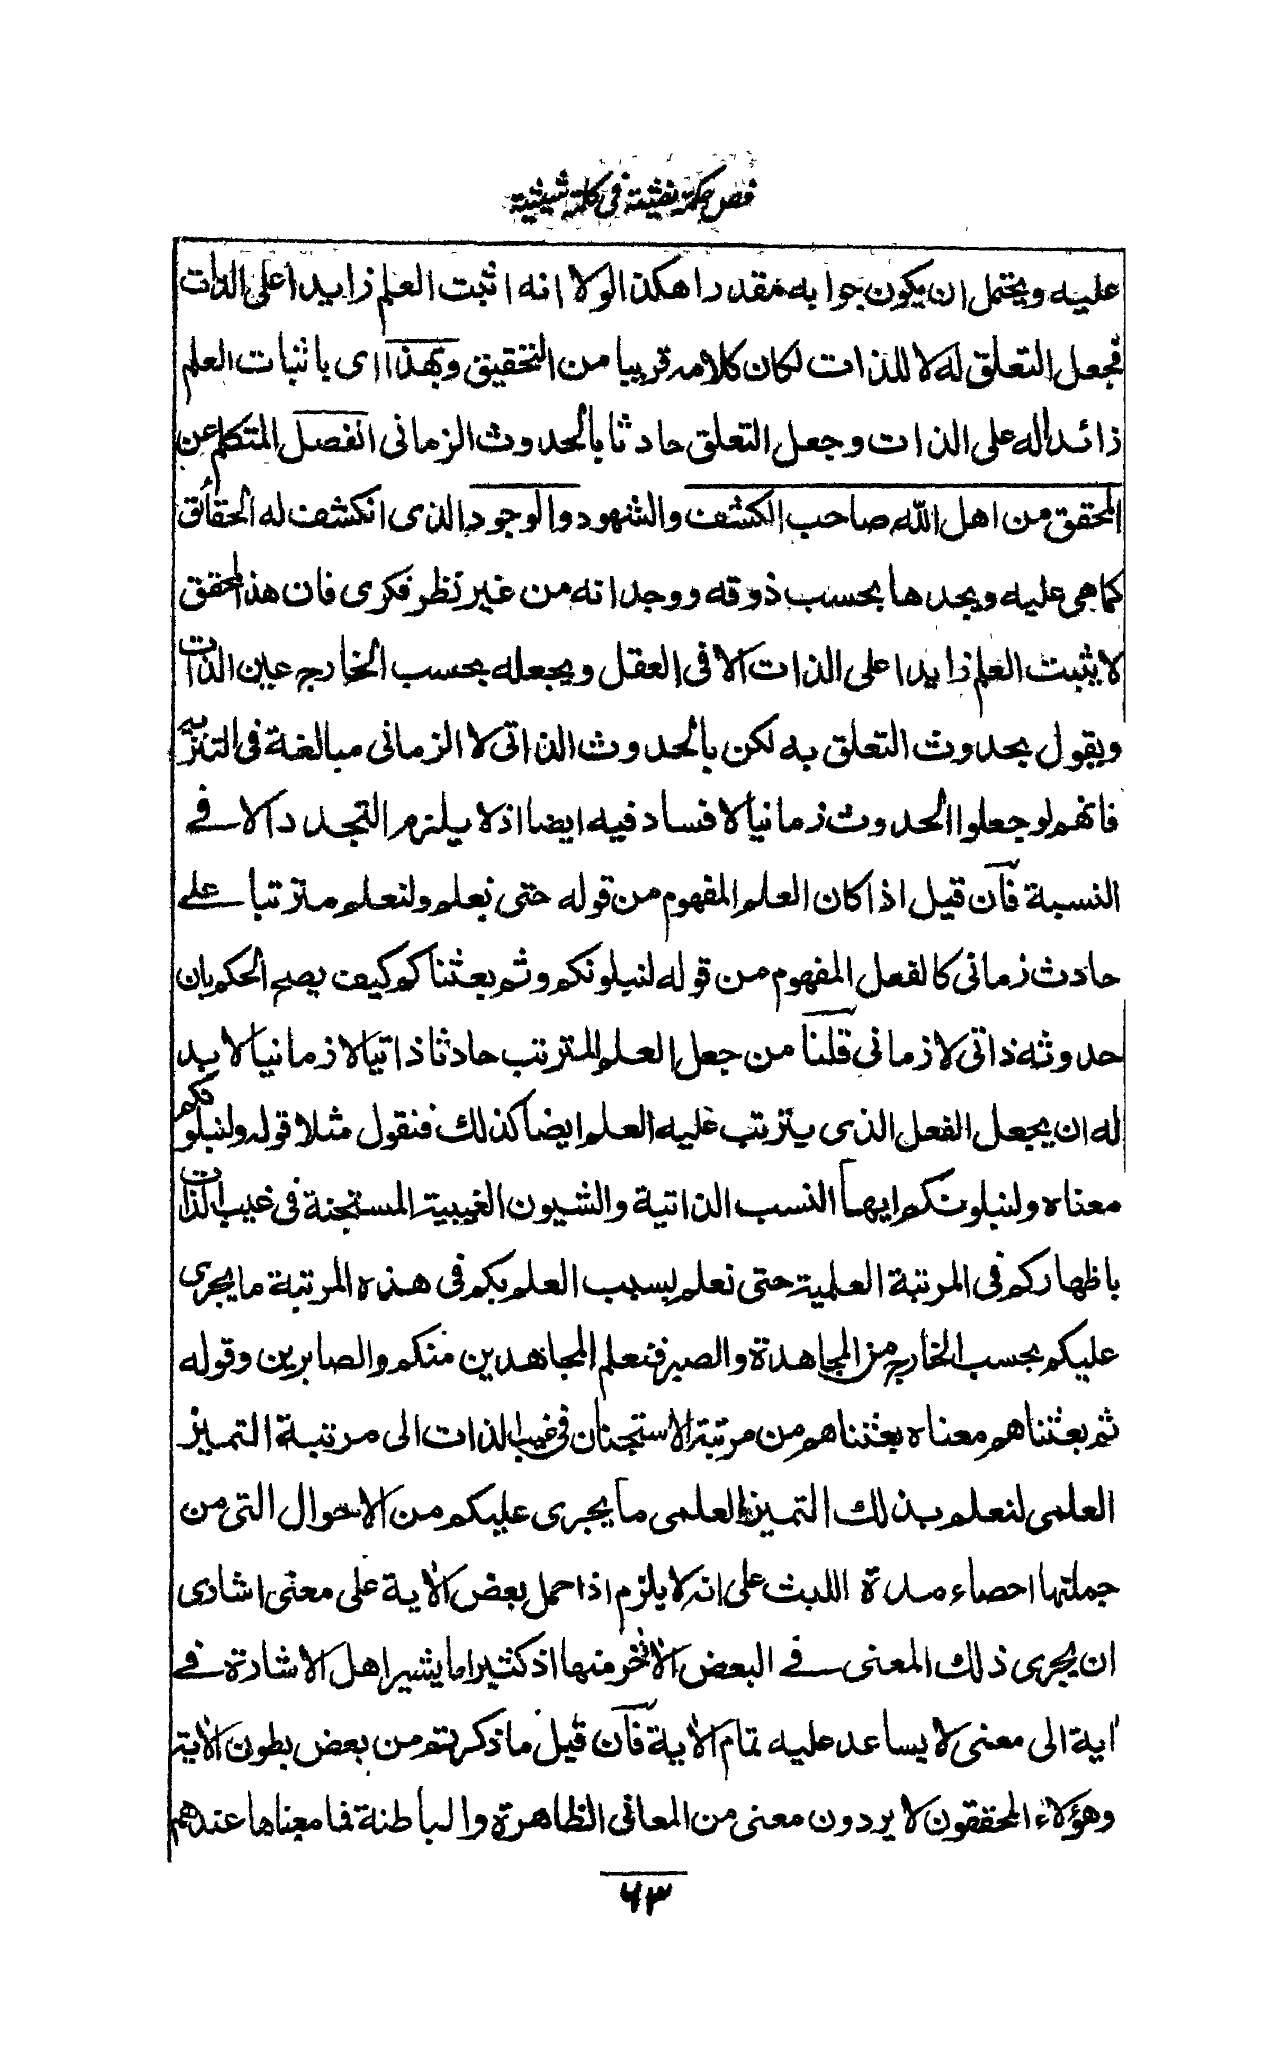 فص حكمة نفثية في كلمة شيثية
عليه ويحتمل ان يكون جوابه مقدرا هكذا لولا انه اثبت العلم زايدا على الذات
فجعل التعلق له لا للذات لكان كلامه قريبا من التحقيق وبهذا اى باثبات العلم
زائدا له على الذات وجعل التعلق حادثا بالحدوث الزمانى انفصل المتكلم عن
المحقق من اهل الله صاحب الكشف والشهود والوجود الذى انكشف له الحقائق
كما هى عليه ويجدها بحسب ذوقه ووجدانه من غير نظر فكرى فان هذا المحقق
لا يثبت العلم زايدا على الذات الا فى العقل ويجعله بحسب الخارج عين الذات
ويقول بحدوث التعلق به لكن بالحدوث الذاتى لا الزمانى مبالغة فى التنزيه
فانهم لو جعلوا الحدوث زمانيا لا فساد فيه ايضا اذ لا يلزم التجدد الا فے
النسبة فآن قيل اذا كان العلم المفهوم من قوله حتى نعلم ولنعلم مترتبا علے
حادث زمانى كالفعل المفهوم من قوله لنبلونكم وثم بعثناكم كيف يصح الحكم بان
حدوثه ذاتى لا زمانى قلنآ من جعل العلم المترتب حادثا ذاتيا لا زمانيا لا بد
له ان يجعل الفعل الذى يترتب عليه العلم ايضا كذلك فنقول مثلا قوله ولنبلونكم
معناه ولنبلونكم ايها النسب الذاتية والشيون الغيبية المستجنة فى غيب الذات
باظهاركم فى المرتبة العلمية حتى نعلم بسبب العلم بكم فى هذه المرتبة ما يجرى
عليكم بحسب الخارج من المجاهدة والصبر فنعلم المجاهدين منكم والصابرين وقوله
ثم بعثناهم معناه بعثناهم من مرتبة الاستجنان فى غيب الذات الى مرتبة التميز
العلمى لنعلم بذلك التميز العلمى ما يجرى عليكم من الاحوال التى من
جملتها احصاء مدة اللبث على انه لا يلزم اذا حمل بعض الاية على معنى اشارى
ان يجرى ذلك المعنى فے البعض الاخر منها اذ كثيرا ما يشير اهل الاشارة فے
اية الى معنى لا يساعد عليه تمام الاية فآن قيل ما ذكرتم من بعض بطون الاية
وهؤلاء المحققون لا يردون معنى من المعانى الظاهرة والباطنة فما معناها عندهم
٦٣